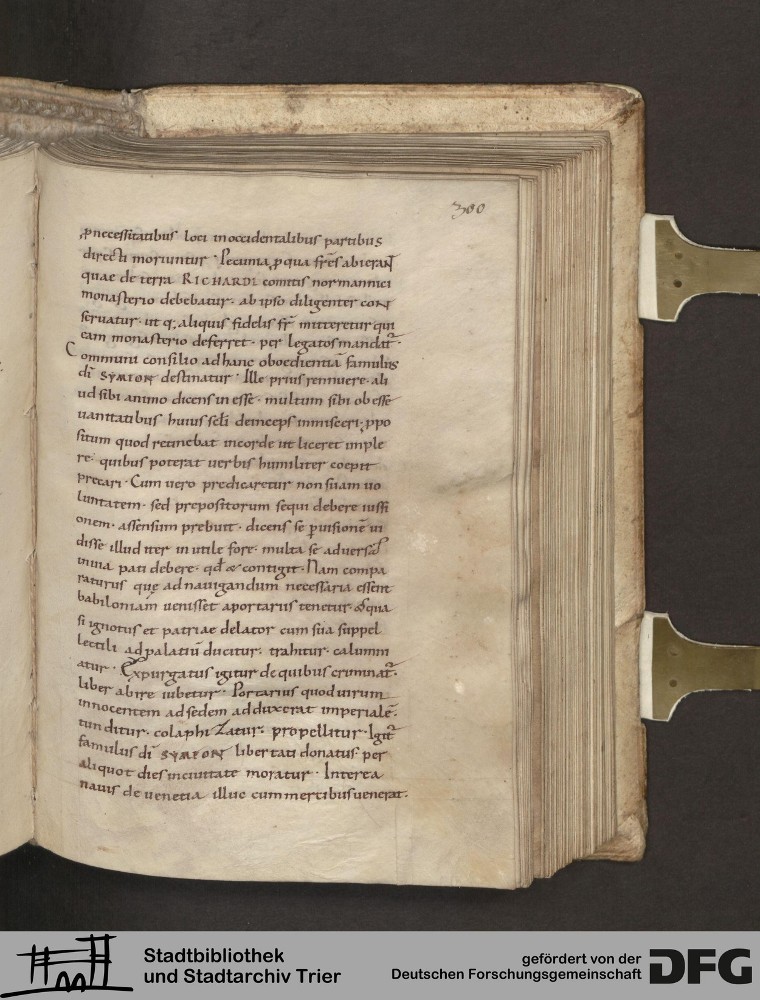 300
ꝓnecessitatibus loci inoccidentalibus partibus
directi moriuntur · Pecunia ꝓqua frēs abieranT
quae de terra RICHARDI comitis normannici
monasterio debebatur· ab ipso diligenter coN
seruatur· ut q; aliquis fidelis fr̄ mitteretur qui
eam monasterio deferret· per legatos mandat᷑·
Communi consilio adhanc oboedientiā famulus
dī SYMEON destinatur · Ille prius rennuere· ali
ud sibi animo dicens inesse· multum sibi obesse
uanitatibus huius sc̄li deinceps inmisceri; ꝓpo
situm quod retinebat incorde ut liceret imple
re· quibus poterat uerbis humiliter coepit
precari · Cum uero predicaretur non suam uo
luntatem· sed prepositorum sequi debere iussi
onem· assensum prebuit· dicens se ꝑuisionē ui
disse illud iter inutile fore· multa se aduersa
inuia pati debere· qđ & contigit· Nam compa
raturus quę adnauigandum necessaria essent
babiloniam uenisset aportariis tenetur· &qua
si ignotus et patriae delator cum sua suppel
lectili adpalatiū ducitur· trahitur· calumni
atur · Expurgatus igitur de quibus criminat᷑·
liber abire iubetur· Portarius quod uirum
innocentem adsedem adduxerat imperialē·
tunditur· colaphiZatur· propellitur· Igit᷑
famulus dī SYMEON libertati donatus per
aliquot dies inciuitate moratur · Interea
nauis de uenetia illuc cummercibusuenerat·
Stadtbibliothek
und Stadtarchiv Trier
gefördert von der
Deutschen Forschungsgemeinschaft
DFG